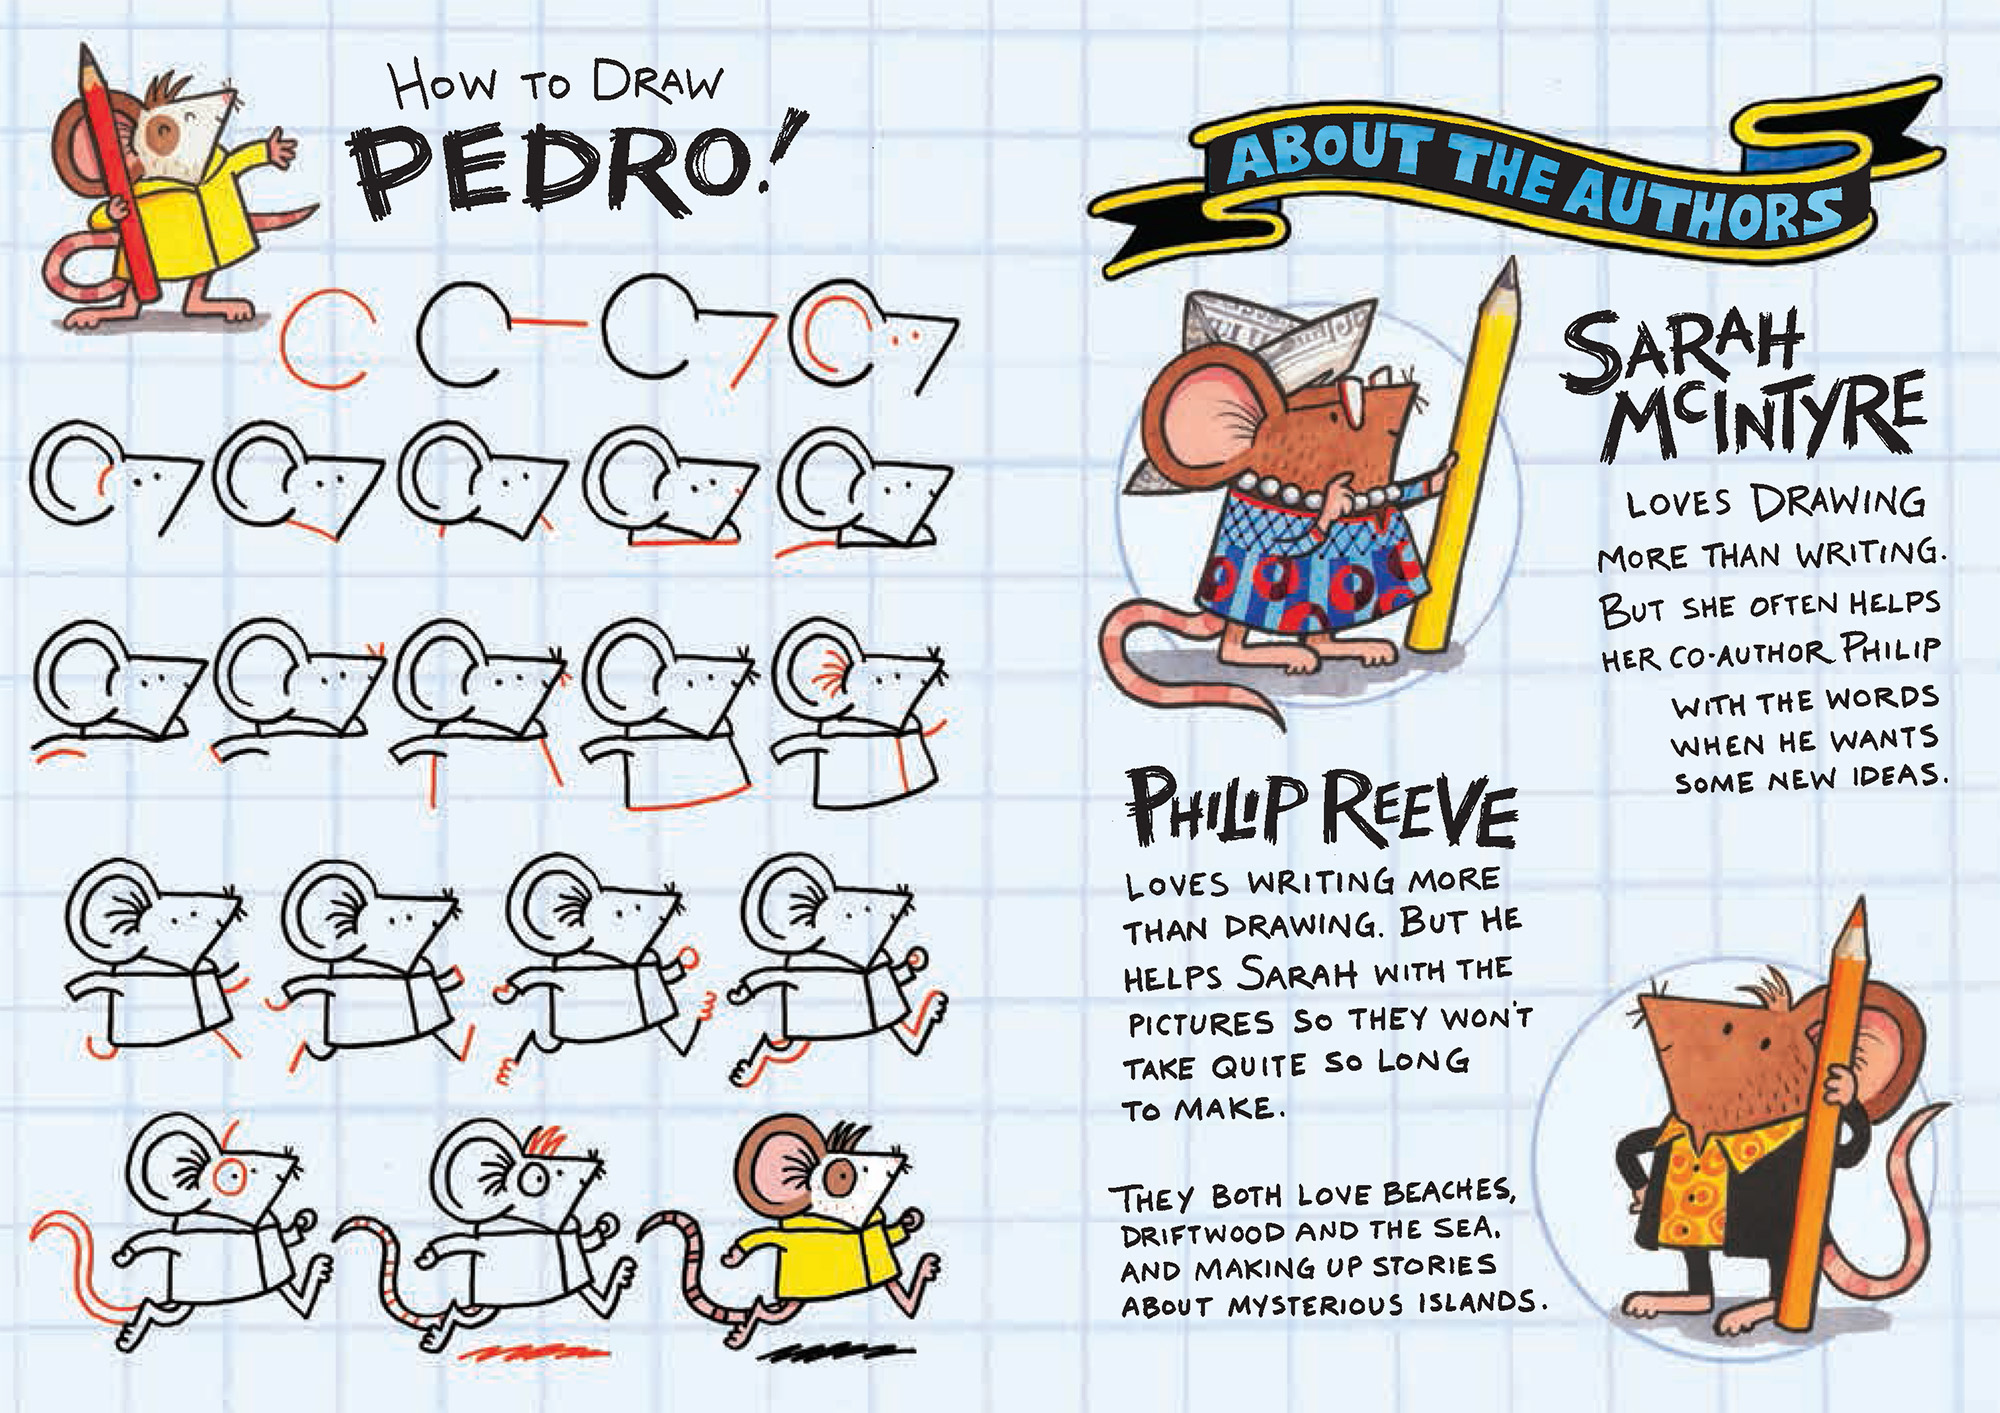 How to Draw
PEDRO!
ABOUT THE AUTHORS
SARAH
McINTYRE
LOVES DRAWING
MORE THAN WRITING.
BUT SHE OFTEN HELPS
HER CO-AUTHOR PHILIP
WITH THE WORDS
WHEN HE WANTS
SOME NEW IDEAS.
PHILIP REEVE
LOVES WRITING MORE
THAN DRAWING. BUT HE
HELPS SARAH WITH THE
PICTURES SO THEY WON'T
TAKE QUITE SO LONG
TO MAKE.
THEY BOTH LOVE BEACHES,
DRIFTWOOD AND THE SEA.
AND MAKING UP STORIES
ABOUT MYSTERIOUS ISLANDS.